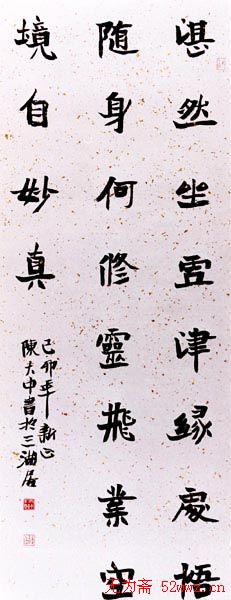 湛然坐虛津緣處悟
随身何修靈飛業空
境自妙真
己卯年新正
陳大中書於三湖居
无为斋 52wwz.cn